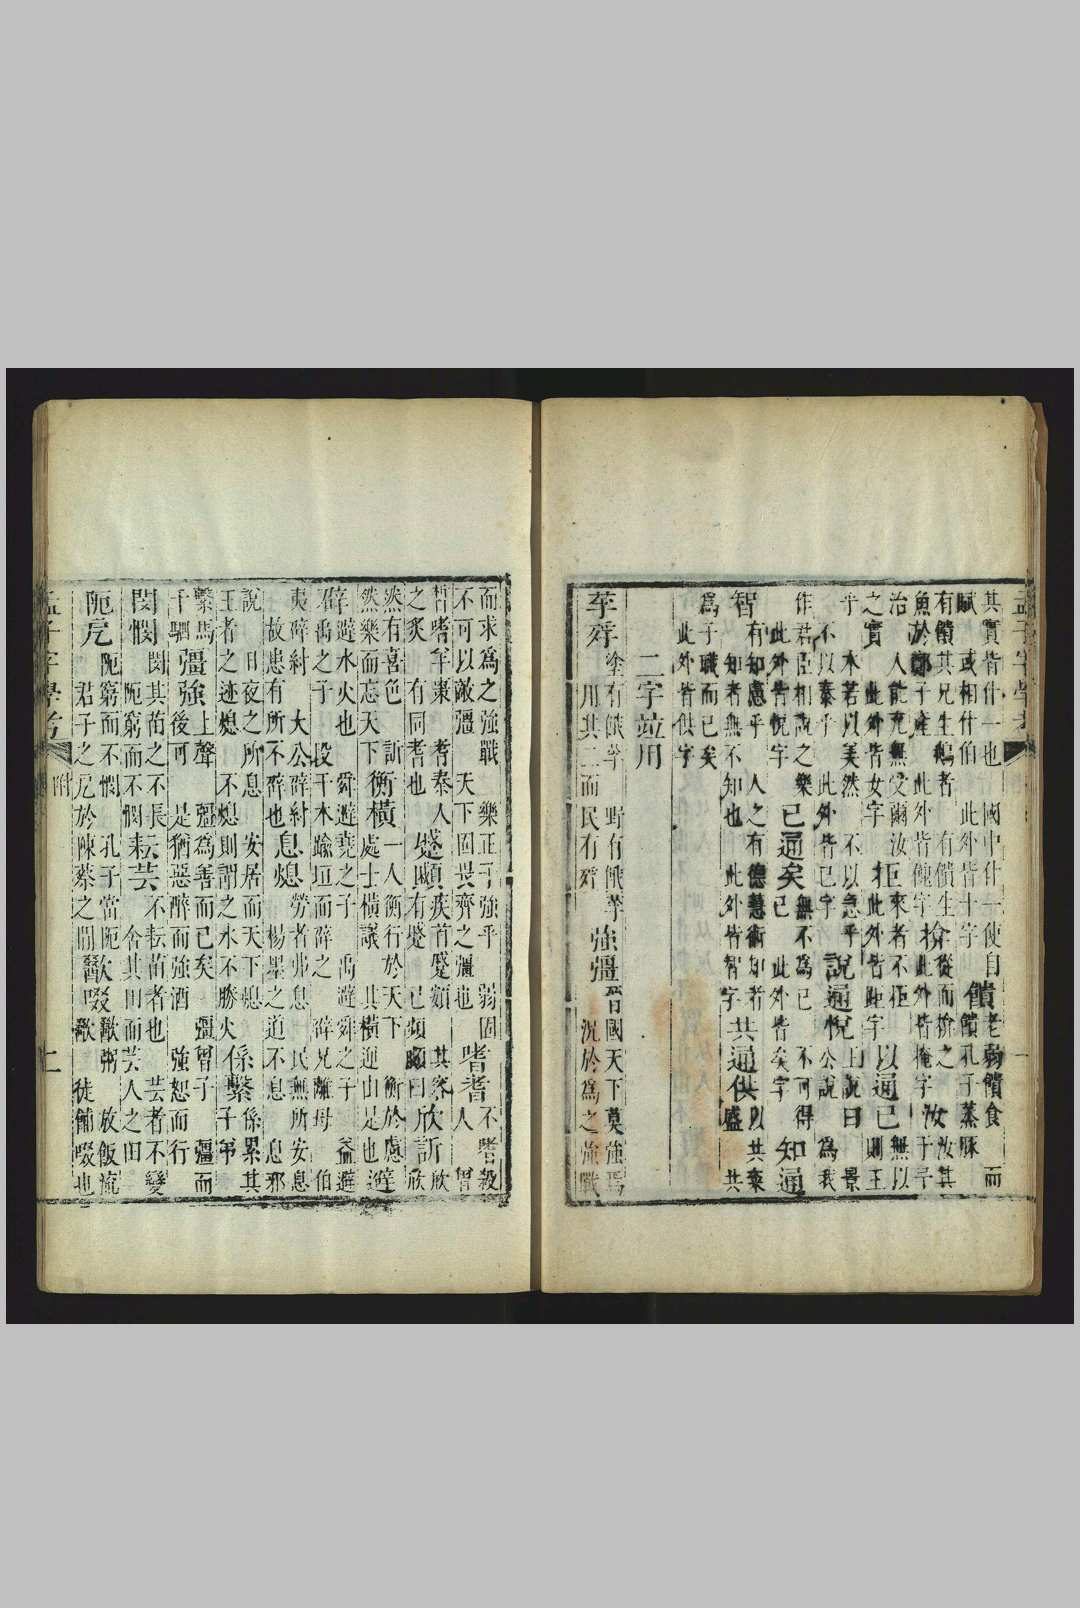 孟子字學考
其實皆什一也　國中什一使自
賦　或相什伯　此外皆十字
饋
老弱饋食　而
饋孔子蒸豚
有饋其兄生鵝者　有饋生
魚於鄭子產　此外皆餽字
從而揜之
此外皆掩字
汝
汝其
于予
治　人能充無受爾汝
之實　此外皆女字
來者不拒
此外皆距字
以通已
無以
則王
乎　木若以美然　不以急乎
不以泰乎　此外皆已字
說通悅
王說曰　景
公說　為我
作君臣相說之樂
此外皆悅字
已通矣
無不為已　不可得
已　此外皆矣字
知通
智
有知慮乎　人之有德慧術知者
知者無不知也　此外皆智字
共通供
以共粢
盛　共
為子職而已矣
此外皆供字
二字竝用
莩殍
塗有餓莩　野有餓莩
用其二而民有殍
強彊
晉國天下莫強焉
況於為之強戰
而求為之強戰　樂正子強乎　弱固
不可以敵彊　天下固畏齊之彊也
嗜耆
不嗜殺
人　曾
晳嗜羊棗　耆秦人
之炙　有同耆也
蹙顣
疾首蹙頞　其容
有蹙　已頻顣曰
欣訢
欣
欣
然有喜色　訢
然樂而忘天下
衡橫
一人衡行於天下　衡於慮
處士橫議　其橫逆由是也
避
辟
避水火也　舜避堯之子　禹避舜之子　益避
禹之子　段干木踰垣而辟之　辟兄離母　伯
夷辟紂　太公辟紂
故患有所不辟也
息熄
勞者弗息　民無所安息
楊墨之道不息　息邪
說　日夜之所息　安居而天下熄
王者之迹熄　不熄則謂之水不勝火
係繫
係累其
子弟
繫馬
千駟
彊強
上聲　彊為善而已矣　彊曾子　彊而
後可　是猶惡醉而強酒　強恕而行
閔憫
閔其苗之不長
阨窮而不憫
耘芸
不耘苗者也　芸者不變
舍其田而芸人之田
阨戹
阨窮而不憫　孔子當阨
君子之戹於陳蔡之間
歠啜
歠粥　放飯流
歠　徒餔啜也
孟子字學考　附　七